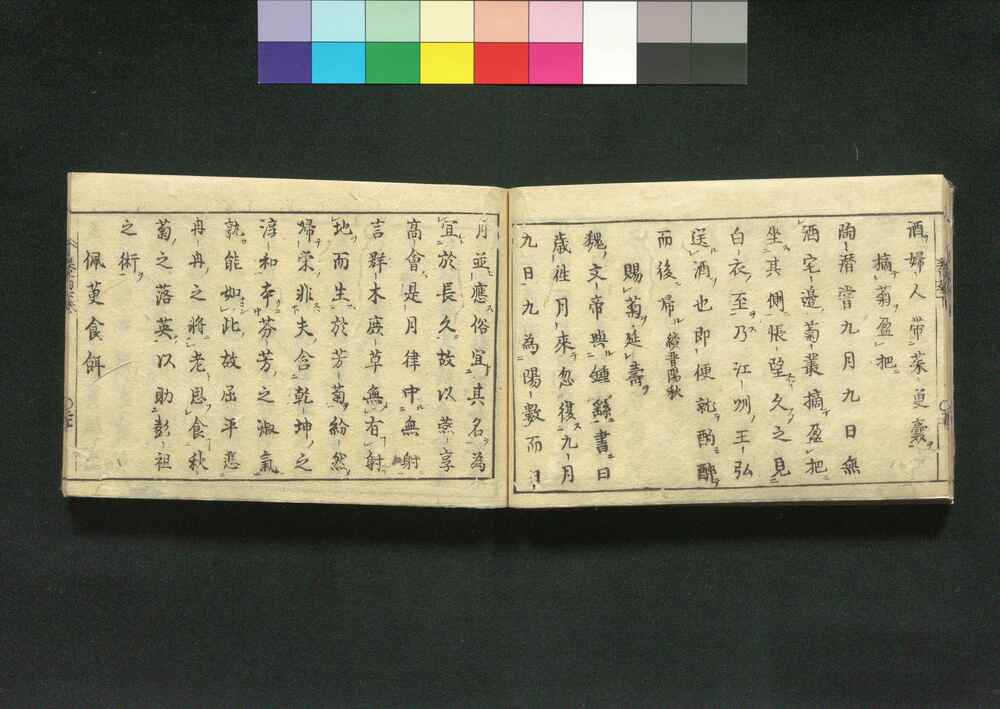 酒婦人帶茱萸囊
摘菊盈把
陶潛嘗九月九日無
酒宅邉菊叢摘盈把
坐其側悵望久之見
白衣至乃江州王弘
送酒也即便就酌醉
而後歸 續晋陽秋
賜菊延壽
魏文帝與鍾繇書曰
歲往月來忽復九月
九日九為陽數而日
月並應俗宜其名為
宜於長久故以燕享
髙會是月律中無射
言群木庻草無有射
地而生於芳菊紛然
獨榮非夫含乾坤之
淳和体芬芳之淑氣
孰能如此故屈平悲
冉冉之將老思食秋
菊之落英以助彭祖
之術
佩萸食餌